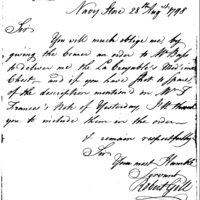 Navy Store 28th Augt 1798
Sir
You will much oblige me by
giving the bearer an order to Mr Bogle
to deliver me the La Croyable's Medicine
Chest, and if you have that a spare
of the description mentioned in Mr T
Francis's Note of Yesterday I'll thank
you to include them in the order
I remain respectfully
Sir
Your most Humble
Servant
Robert Gill